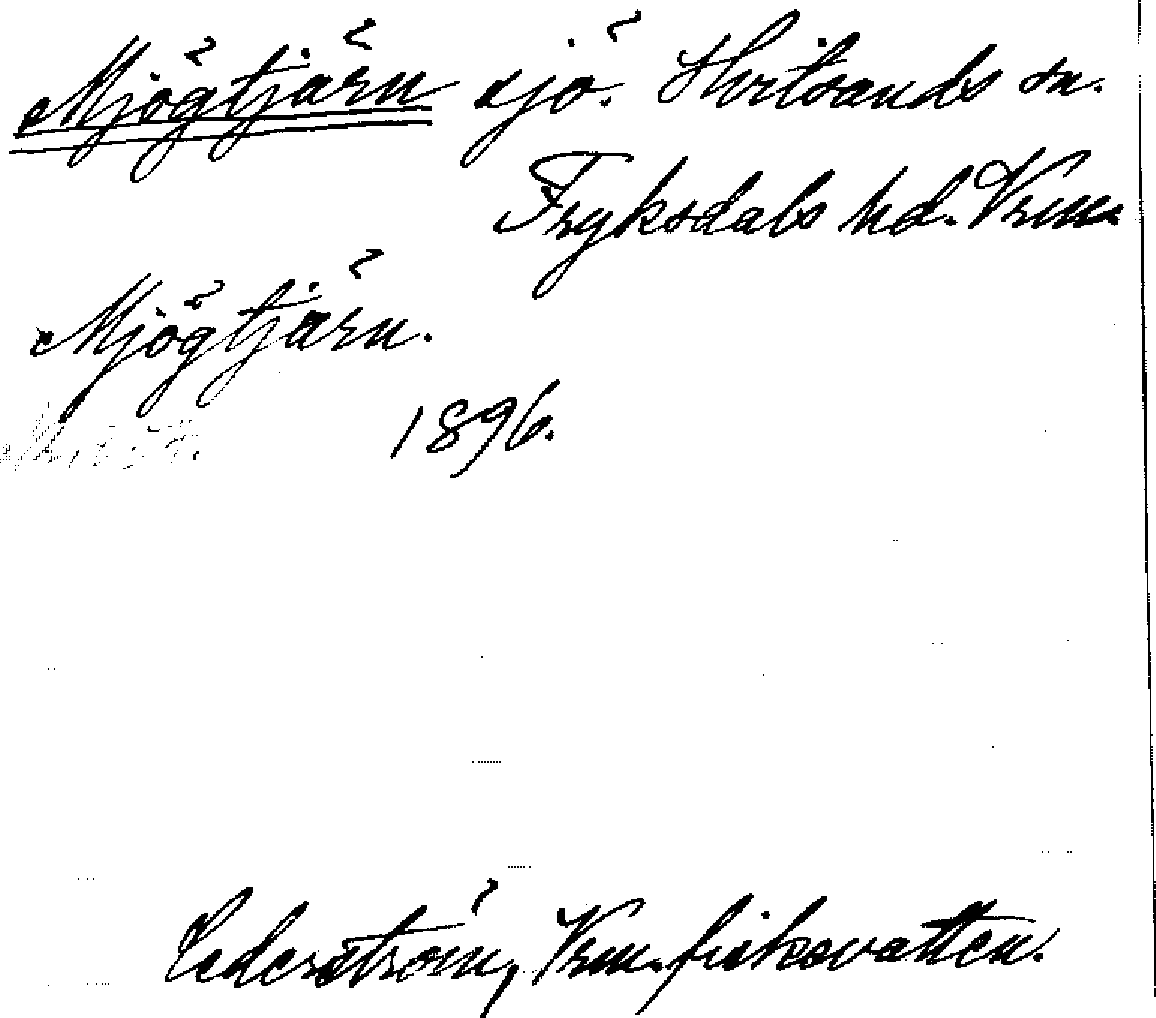 Mjögtjärn sjö. Hvitsands sn.
Fryksdals hd. Vrm.
Mjögtjärn.
1896.
Cederström, Vrm. fiskevatten.